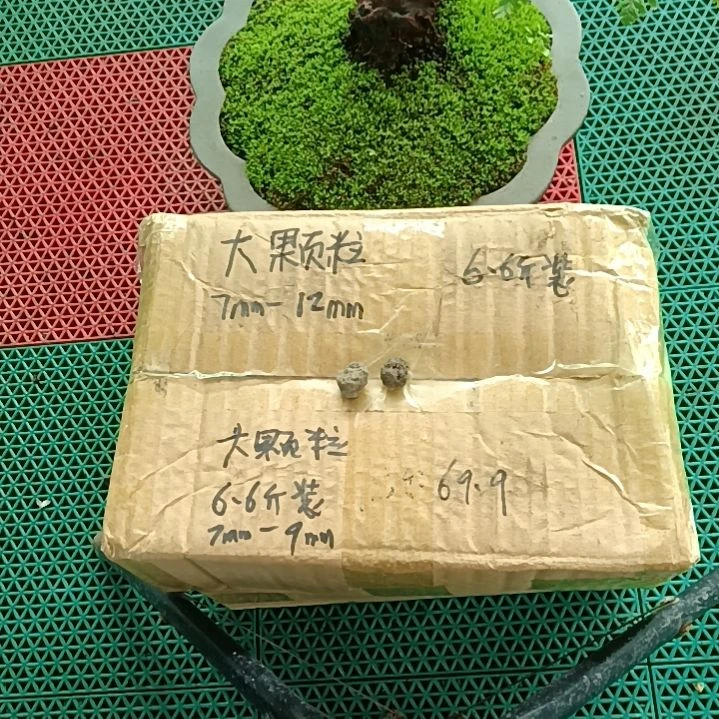 大颗粒
6.6斤装
7mm-12mm
大颗粒
6.6斤装
69.9
7mm-9mm